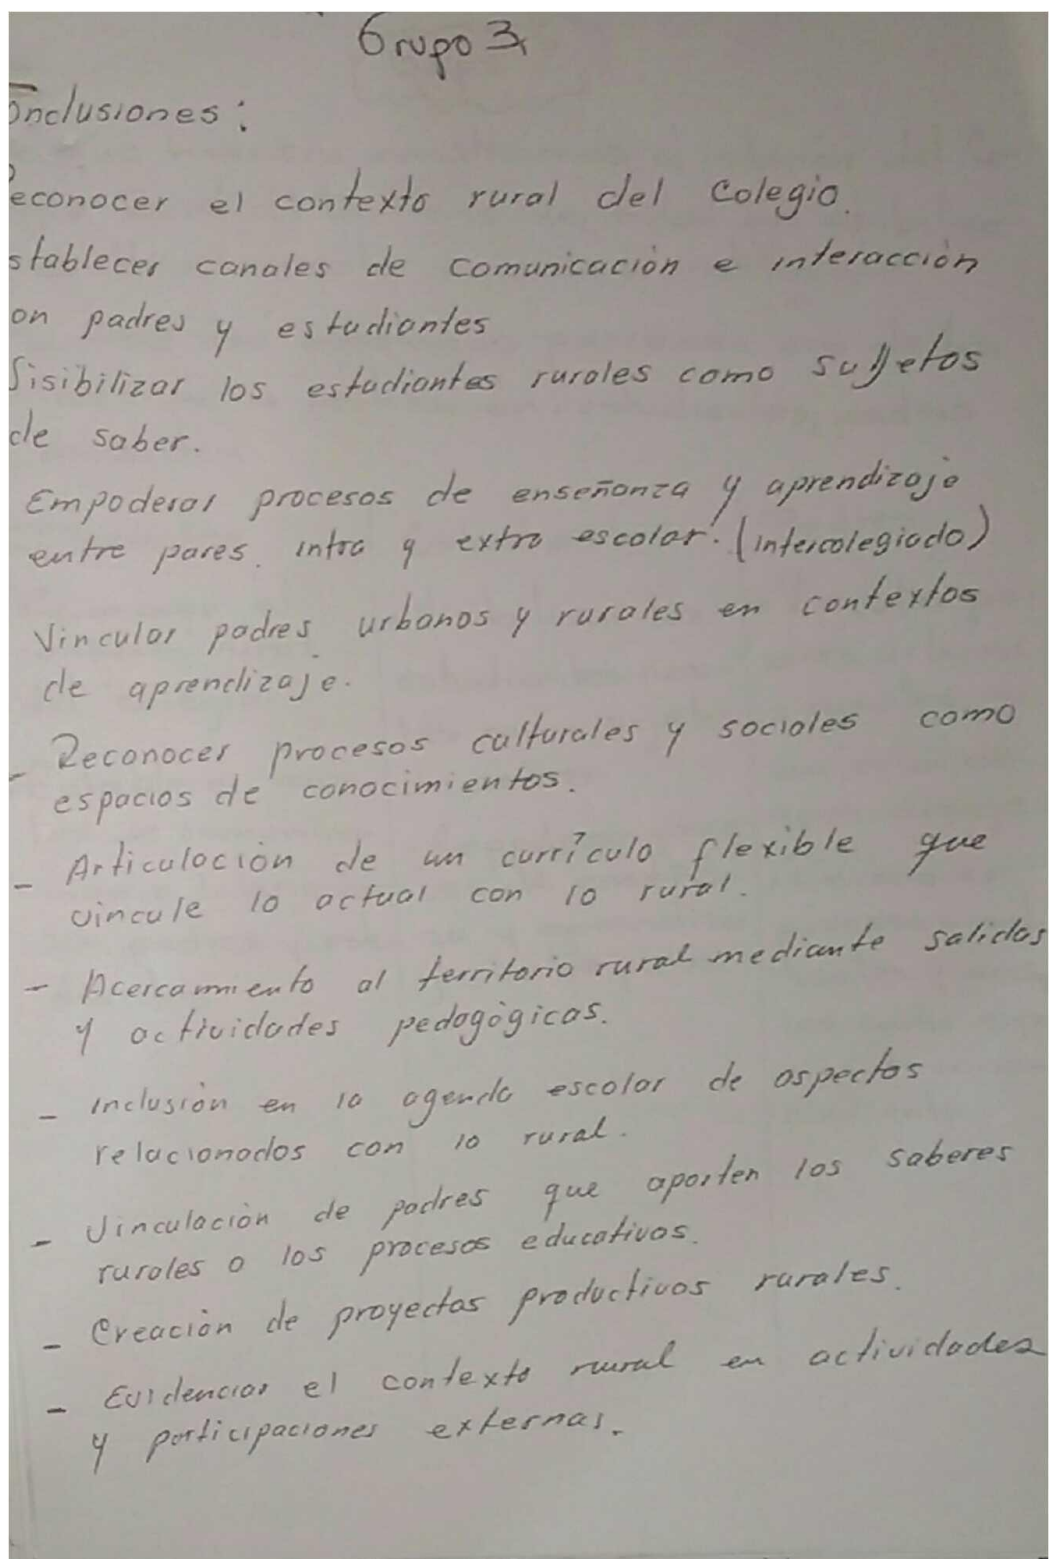 Grupo 3
Conclusiones:
Reconocer el contexto rural del Colegio.
stablecer canales de comunicación e interacción
on padres y estudiantes
Visibilizar los estudiantes rurales como sujetos
de saber.
Empoderar procesos de enseñanza y aprendizaje
entre pares. intra y extra escolar. (intercolegiado)
Vincular padres urbanos y rurales en contextos
de aprendizaje.
- Reconocer procesos culturales y sociales como
espacios de conocimientos.
- Articulación de un currículo flexible que
vincule lo actual con lo rural.
- Acercamiento al territorio rural mediante salidas
y actividades pedagógicas.
- Inclusión en la agenda escolar de aspectos
relacionados con lo rural.
- Vinculación de padres que aporten los saberes
rurales a los procesos educativos.
- Creación de proyectos productivos rurales.
- Evidenciar el contexto rural en actividades
y participaciones externas.